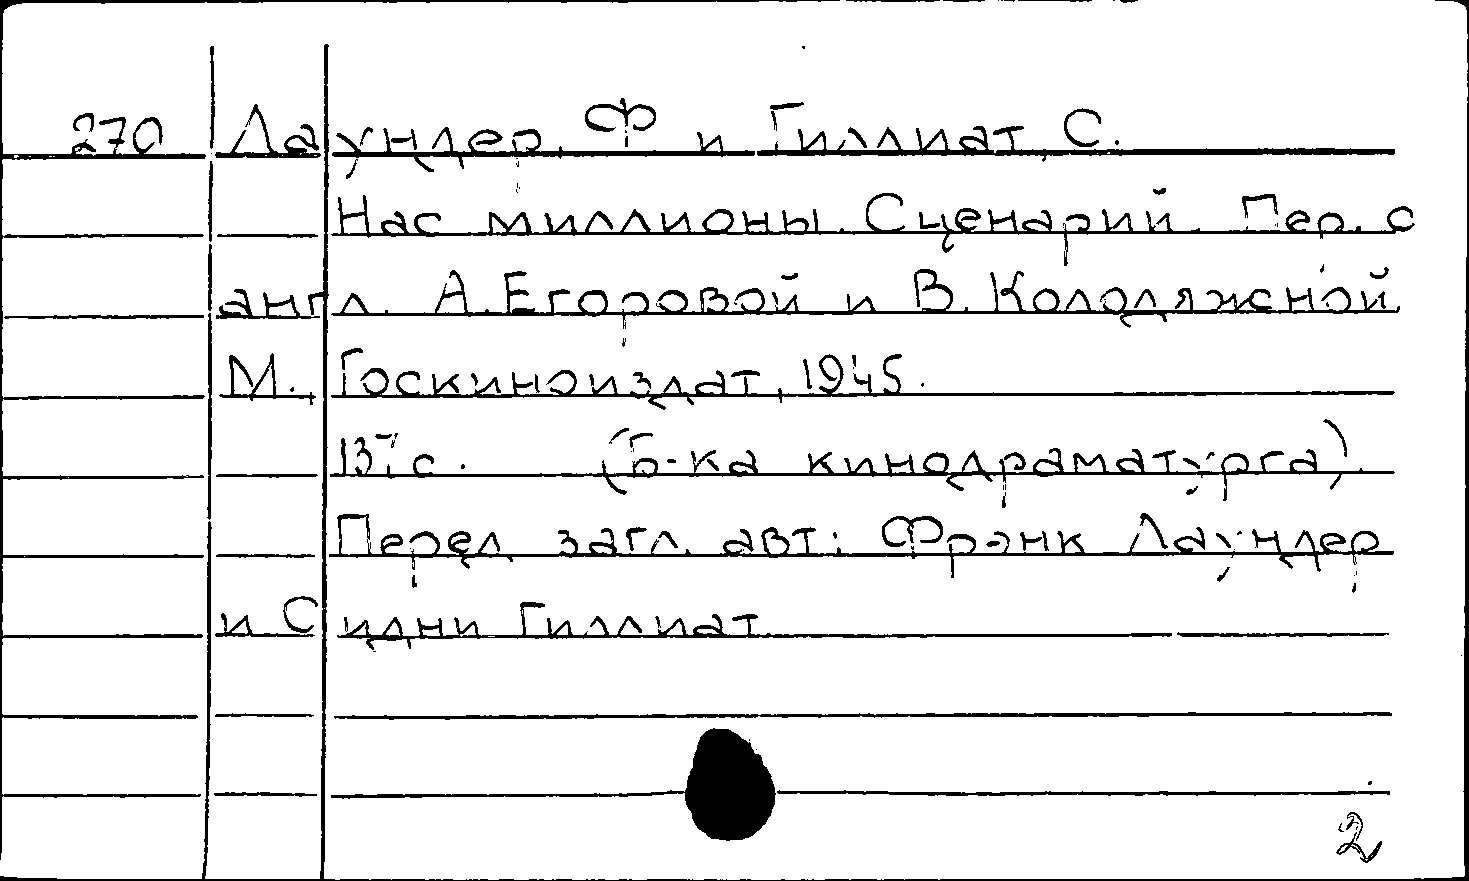 270 Лаундер, Ф и Гиллиат, С.
Нас миллионы. Сценарий. Пер. с
англ. А. Егоровой и В. Колодяжной.
М., Госкиноиздат, 1945.
137 с. (Б-ка кинодраматурга).
Перед загл. авт: Фрэнк Лаундер
и Сидни Гиллиат.
2